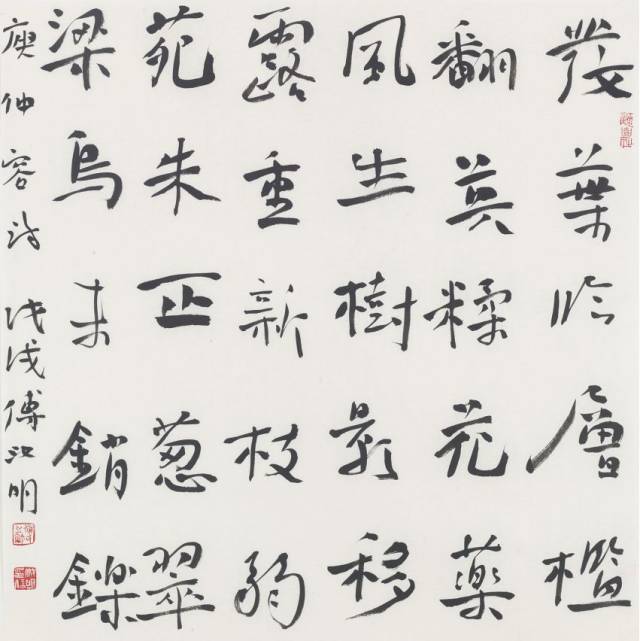 發葉臨層檻
翻英糅花藥
風生樹影移
露重新枝弱
苑朱正葱翠
梁烏未銷鑠
庾仲容詩 戊戌傅江明